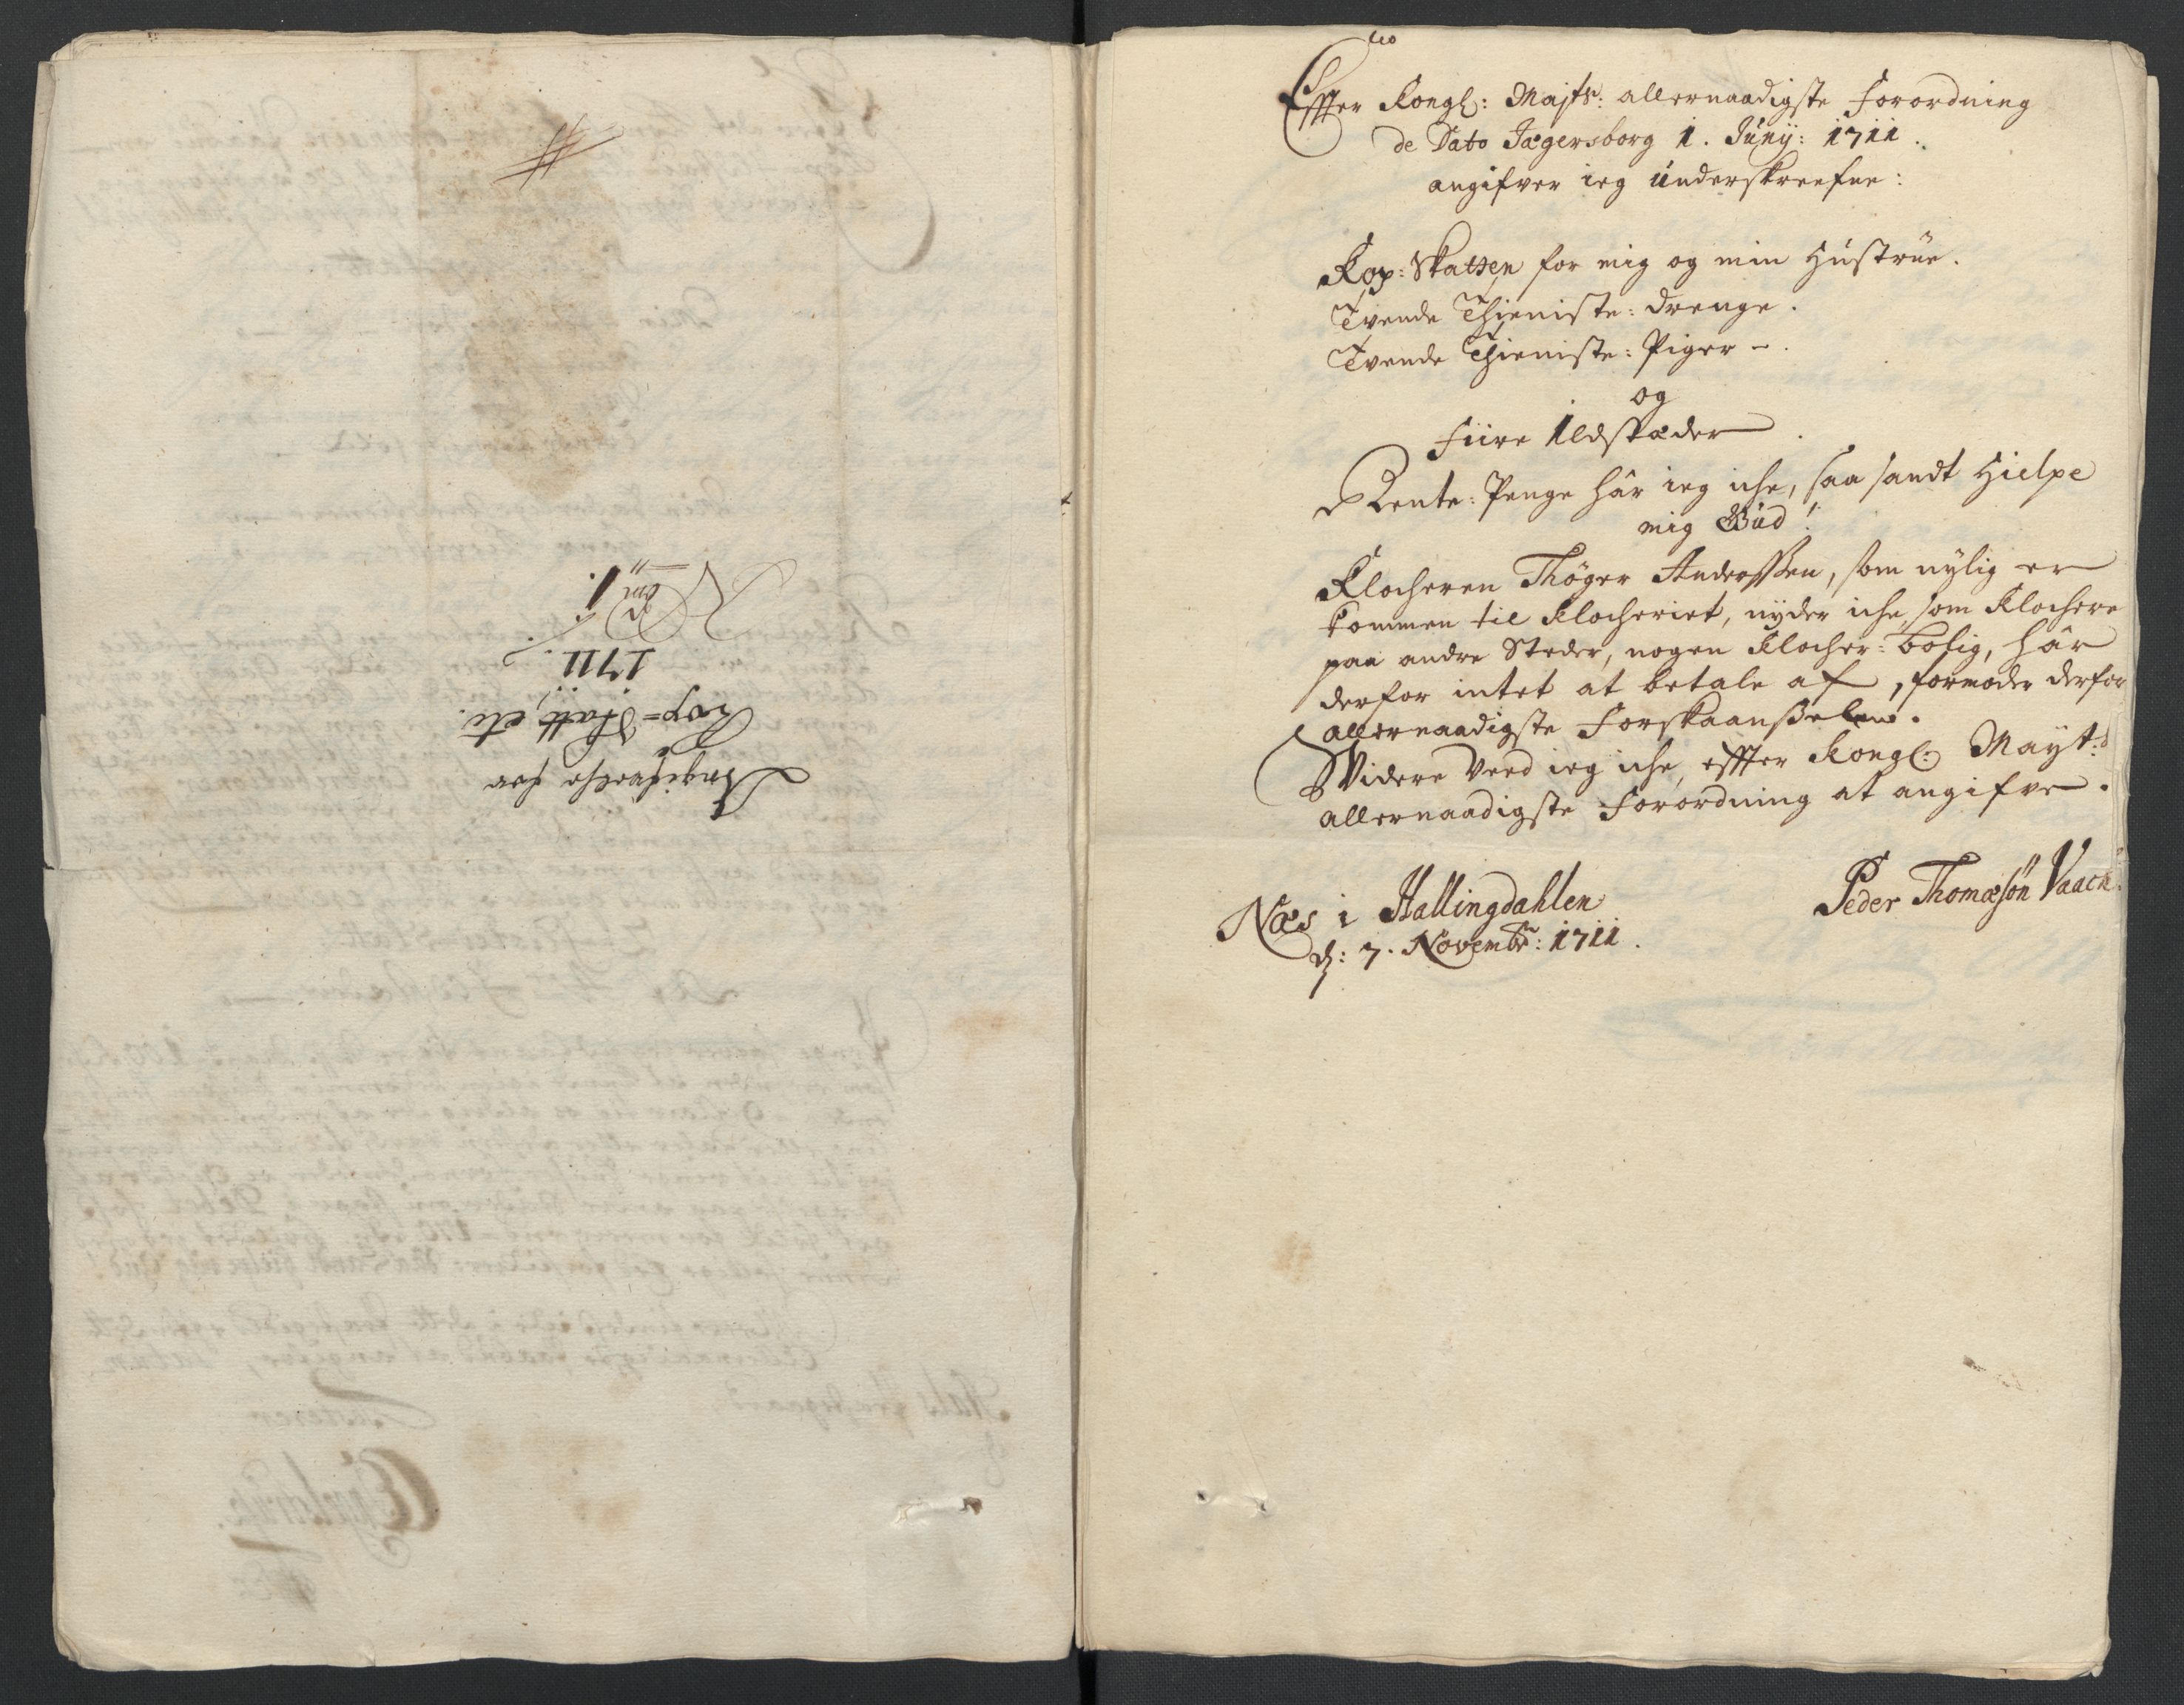 Angifvelse paa
Kop=Skatt, etc.
1711
Effter Kongl: Majts: allernaadigste Forordning
de Dato Jægersborg 1. Junij: 1711.
angifver ieg underskrefne:
Kop: Skatten for mig og min Hustrue.
Tvende Thieniste: Drenge.
Tvende Thieniste: Piger -.
og
Fiire Ildstæder.
Rente: Penge har ieg iche, saa sandt Hielpe
mig Gud!
Klocheren Thøger Anderssen, som nylig er
kommen til Klocheriet, nyder iche, som Klochere
paa andre Steder, nogen Klocher: bolig, har
derfor intet at betale af, formoder derfor
allernaadigste Forskaanßelen.
Widere Veed ieg iche, effter Kongl: Mayt:s
allernaadigste Forordning at angifve.
Næs i Hallingdahlen
d: 7. Novembr: 1711.
Peder Thomæsøn